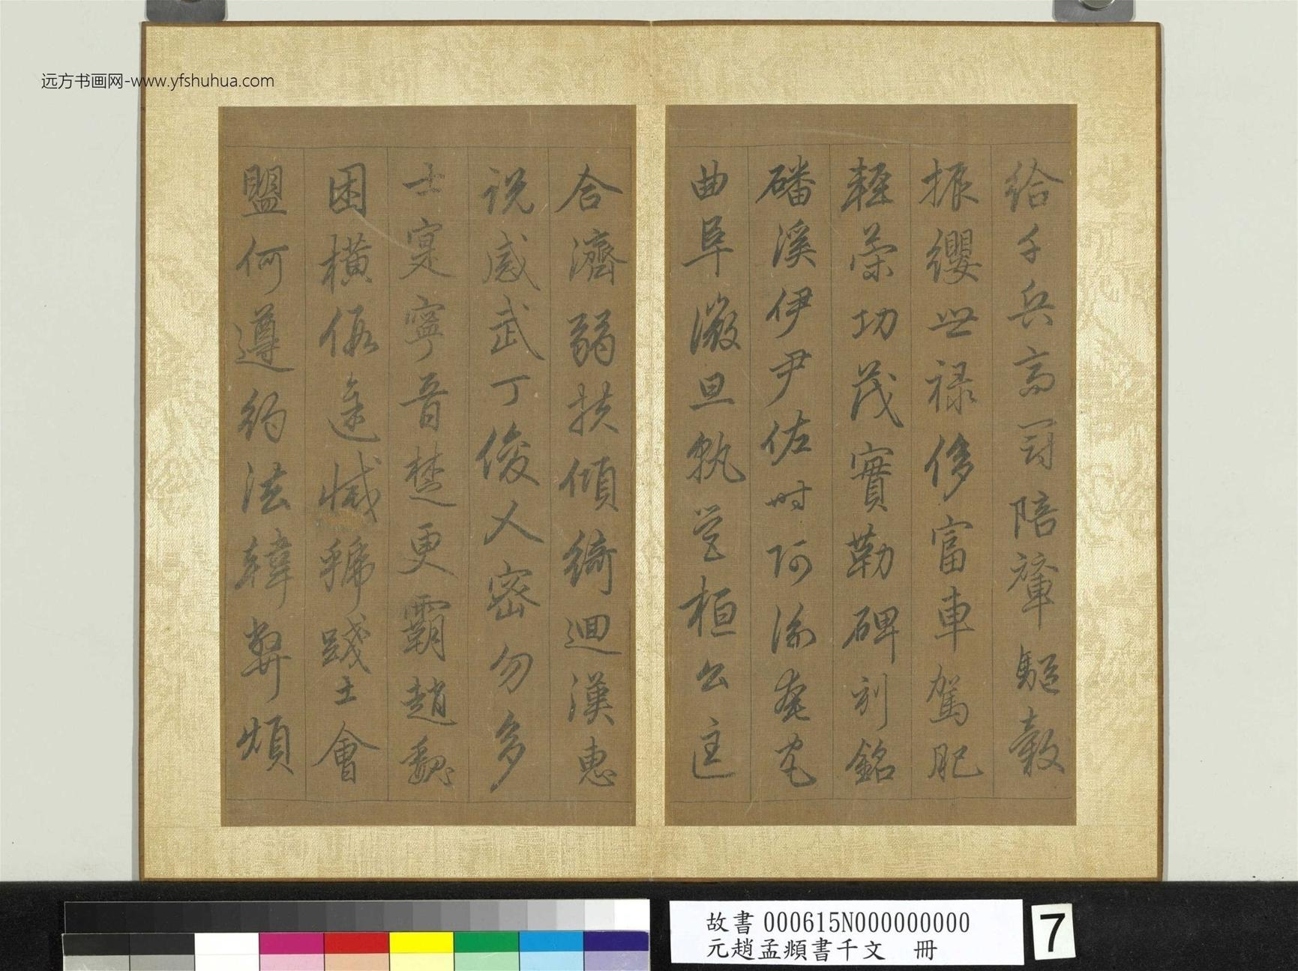 远方书画网-www.yfshuhua.com
給千兵高冠陪輦驅轂
振纓世祿侈富車駕肥
輕策功茂實勒碑刻銘
磻溪伊尹佐時阿衡奄宅
曲阜微旦孰營桓公匡
合濟弱扶傾綺迴漢惠
說感武丁俊乂密勿多
士寔寧晉楚更霸趙魏
困橫假途滅虢踐土會
盟何遵約法韓弊煩
故書 000615N000000000
元趙孟頫書千文 冊
7